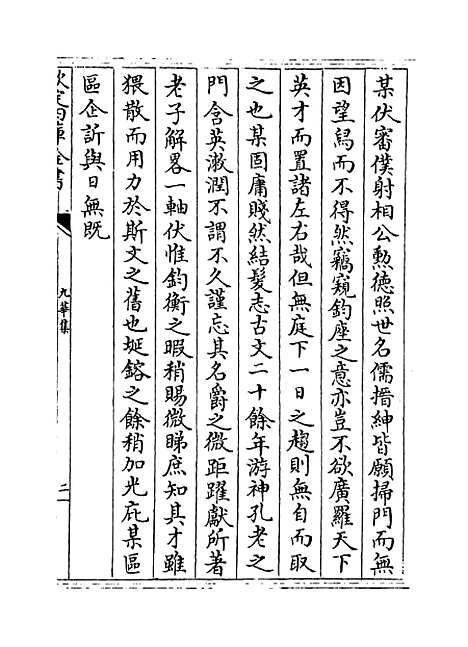 某伏審僕射相公勲徳照世名儒搢紳皆願掃門而無
因望舄而不得然竊窺鈞座之意亦豈不欲廣羅天下
英才而置諸左右哉但無庭下一日之趨則無自而取
之也某固庸賤然結髮志古文二十餘年游神孔老之
門含英漱潤不謂不久謹忘其名爵之微距躍獻所著
老子解畧一軸伏惟鈞衡之暇稍賜微睇庶知其才雖
猥散而用力於斯文之舊也埏鎔之餘稍加光庇某區
區企訢與日無既
欽定四庫全書
九華集
二